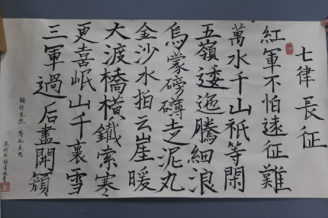 七律長征
紅軍不怕遠征難
萬水千山祇等閑
五嶺逶迤騰細浪
烏蒙磅礴走泥丸
金沙水拍云崖暖
大渡橋橫鐵索寒
更喜岷山千裏雪
三軍過后盡開顏